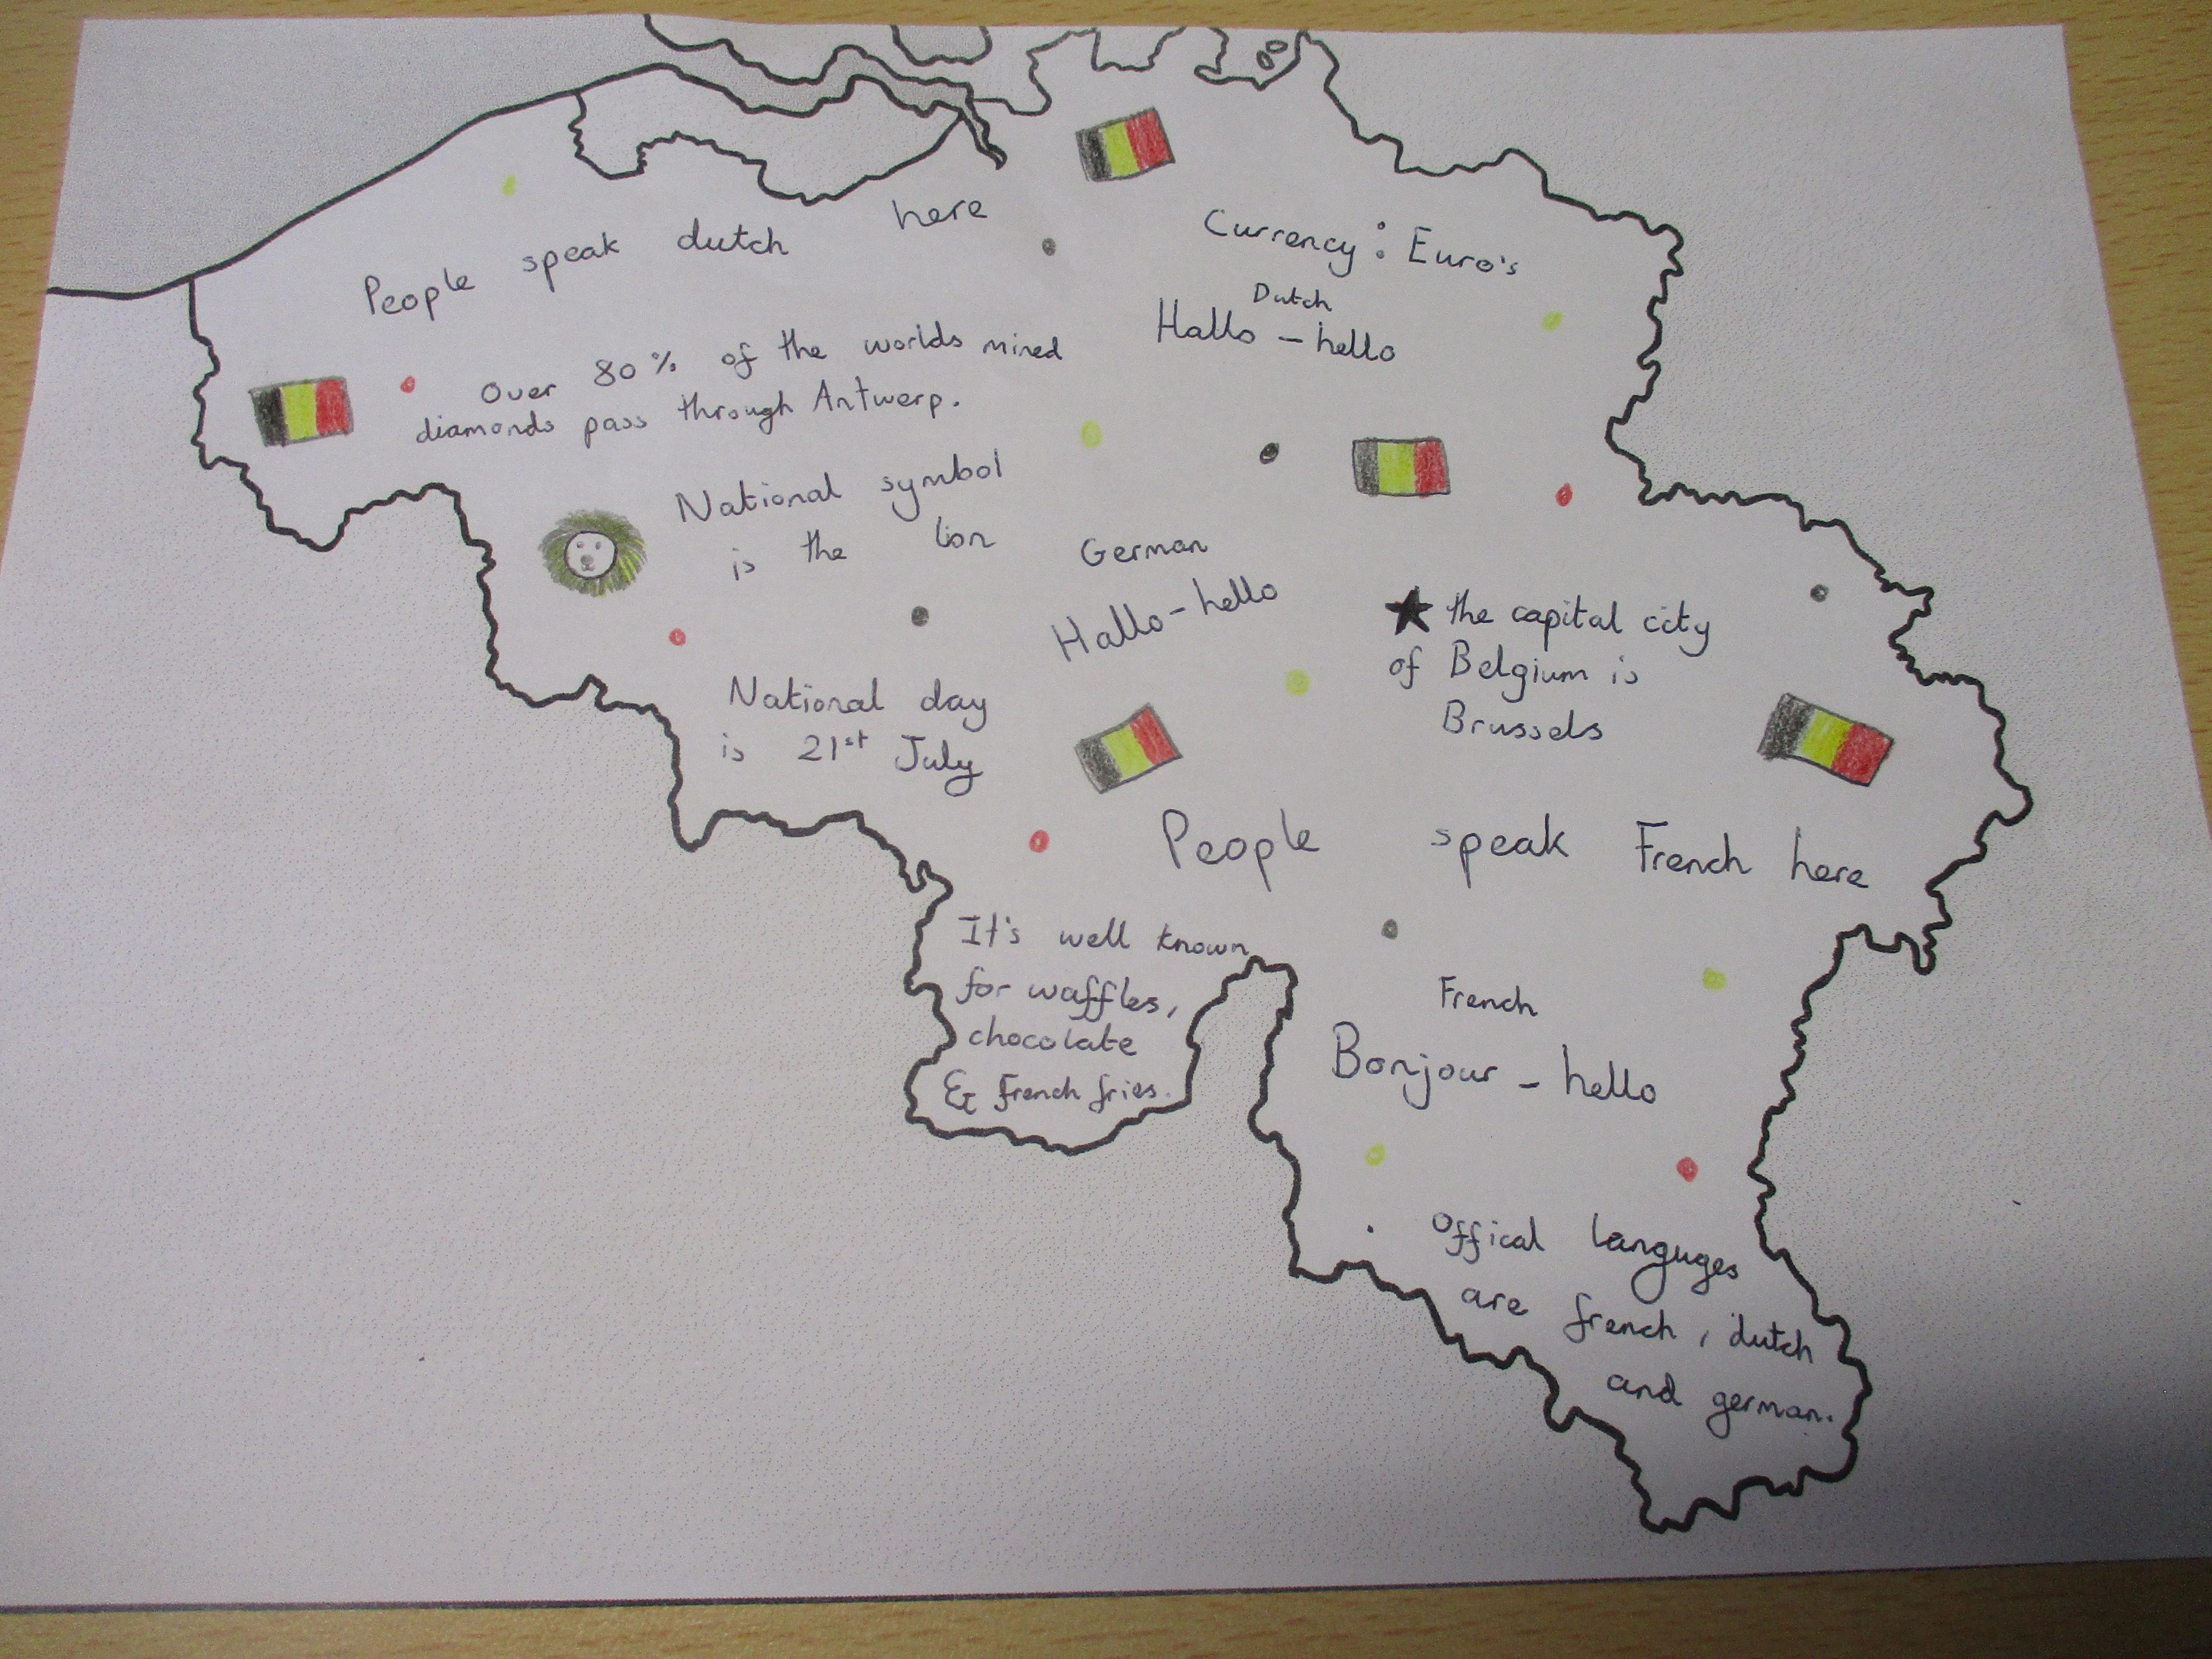 People speak dutch here
Currency: Euro's
Dutch
Hallo - hello
Over 80% of the worlds mined
diamonds pass through Antwerp.
National symbol
is the lion
German
Hallo - hello
the capital city
of Belgium is
Brussels
National day
is 21st July
People speak French here
It's well known
for waffles,
chocolate
& French fries.
French
Bonjour - hello
Offical languges
are french, dutch
and german.